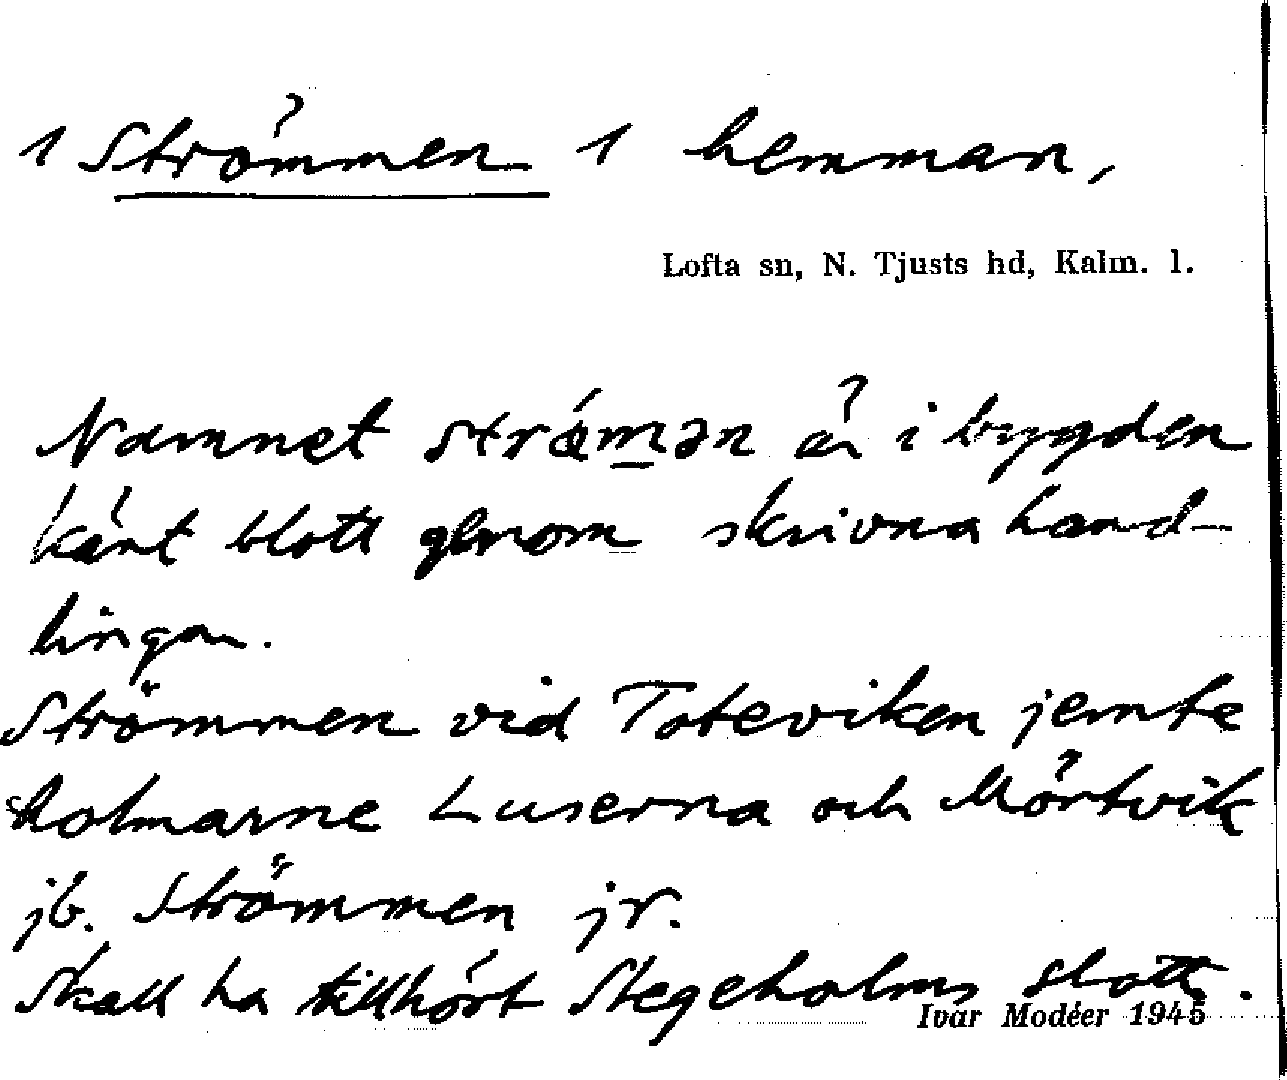 1 Strömmen 1 hemman,
Lofta sn, N. Tjusts hd, Kalm. l.
Namnet strǿm̲ən är i bygden
känt blott genom skrivna hand-
lingar.
Strömmen vid Toteviken jemte
holmarne Luserna och Mörtvik
jb. Strömmen jr.
Skall ha tillhört Stegeholms slott.
Ivar Modéer 1945